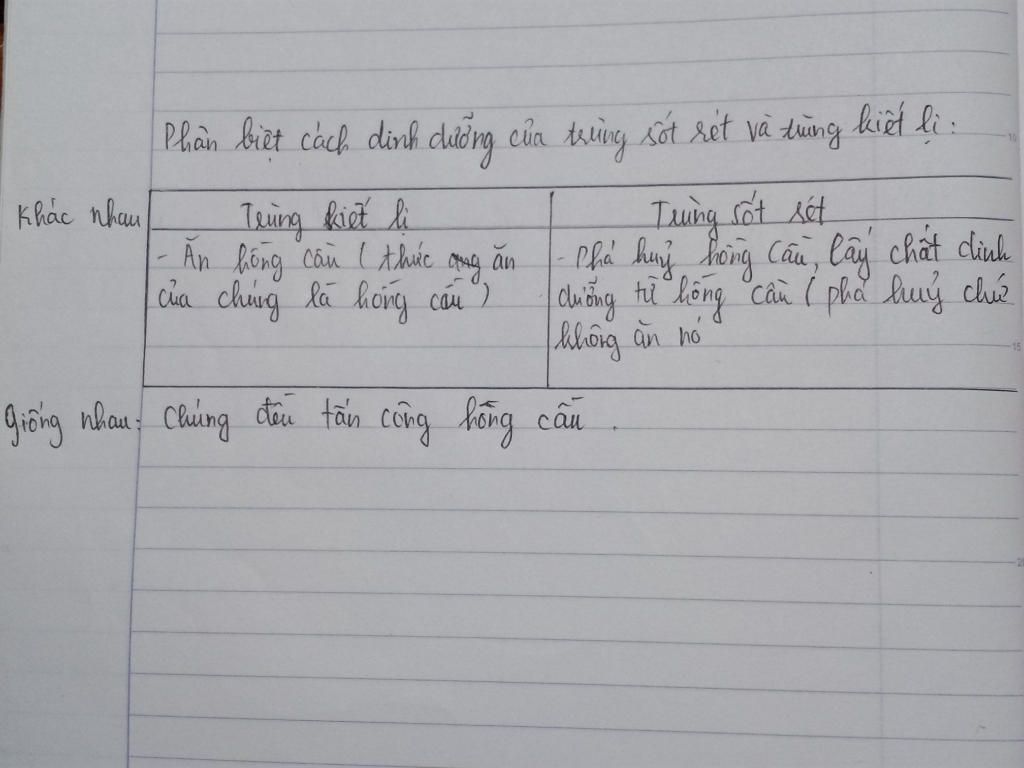 Phân biệt cách dinh dưỡng của trùng sốt rét và trùng kiết lị:
Khác nhau
Trùng kiết lị
Trùng sốt rét
- Ăn hồng cầu (thức ăn
của chúng là hồng cầu)
- Phá huỷ hồng cầu, lấy chất dinh
dưỡng từ hồng cầu (phá huỷ chứ
không ăn nó
Giống nhau: Chúng đều tấn công hồng cầu.